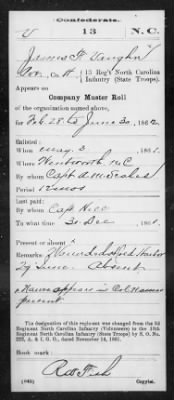 Confederate.
V 13 N.C.
James F. Vaughn
Co. H, 13 Reg't North Carolina
Infantry (State Troops).
Appears on
Company Muster Roll
of the organization named above,
for Feb 28 to June 30, 1862.
Enlisted:
When May 3, 1861.
Where Wentworth, N.C.
By whom Capt A. M. Scales
Period 12 mos
Last paid:
By whom Capt
To what time 30 Dec, 1861.
Present or absent
Remarks:
Absent
Name appears in Col. Names
present
The designation of this regiment was changed from the 3d
Regiment North Carolina Infantry (Volunteers) to the 13th
Regiment North Carolina Infantry (State Troops) by S. O. No.
222, A. & I. G. O., dated November 14, 1861.
Book mark
(642)
Copyist.